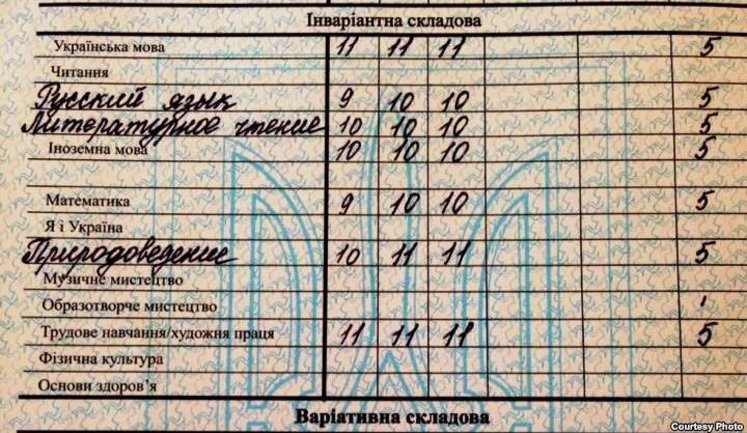 Інваріантна складова
Українська мова 11 11 11 5
Читання
Русский язык 9 10 10 5
Литературное чтение 10 10 10 5
Іноземна мова 10 10 10 5
Математика 9 10 10 5
Я і Україна
Природоведение 10 11 11 5
Музичне мистецтво
Образотворче мистецтво
Трудове навчання/художня праця 11 11 11 5
Фізична культура
Основи здоров’я
Варіативна складова
Courtesy Photo